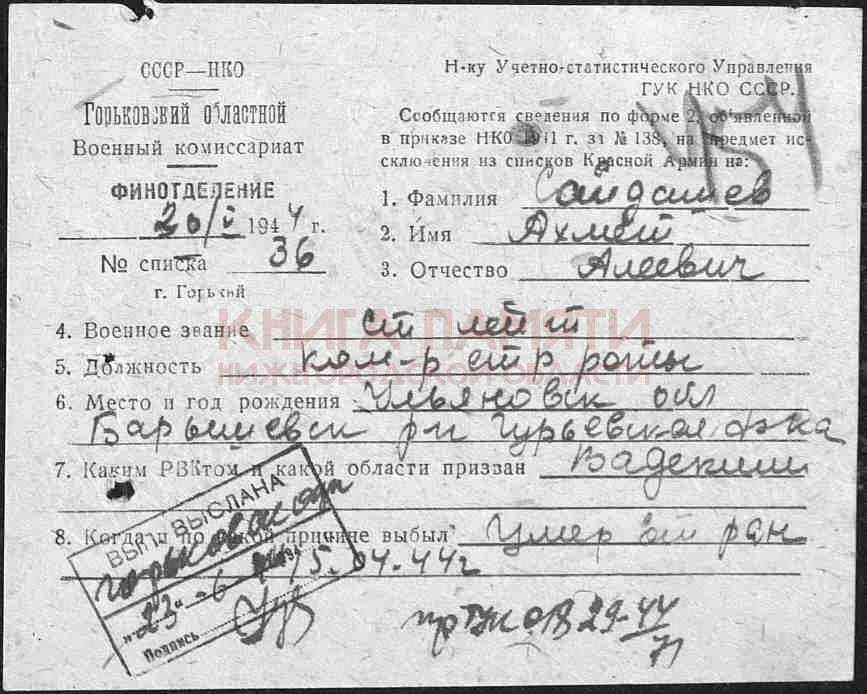 СССР—НКО
Горьковский областной
Военный комиссариат
ФИНОТДЕЛЕНИЕ
20/V 1944 г.
№ списка 36
г. Горький
Н-ку Учетно-статистического Управления
ГУК НКО СССР.
Сообщаются сведения по форме 2, объявленной
в приказе НКО 1941 г. за № 138, на предмет ис-
сключения из списков Красной Армии на:
1. Фамилия Сайдашев
2. Имя Ахмет
3. Отчество Алеевич
4. Военное звание ст лейт
5. Должность ком-р стр роты
6. Место и год рождения Ульяновск обл
Барышевск р-н Гурьевская ф-ка
7. Каким РВКтом и какой области призван Вадским
8. Когда и по какой причине выбыл Умер от ран
15.04.44г
ВЫП. ВЫСЛАНА
Горьковской
"23"-6
Подпись
29-44
71
КНИГА ПАМЯТИ
НИЖЕГОРОДСКОЙ ОБЛАСТИ